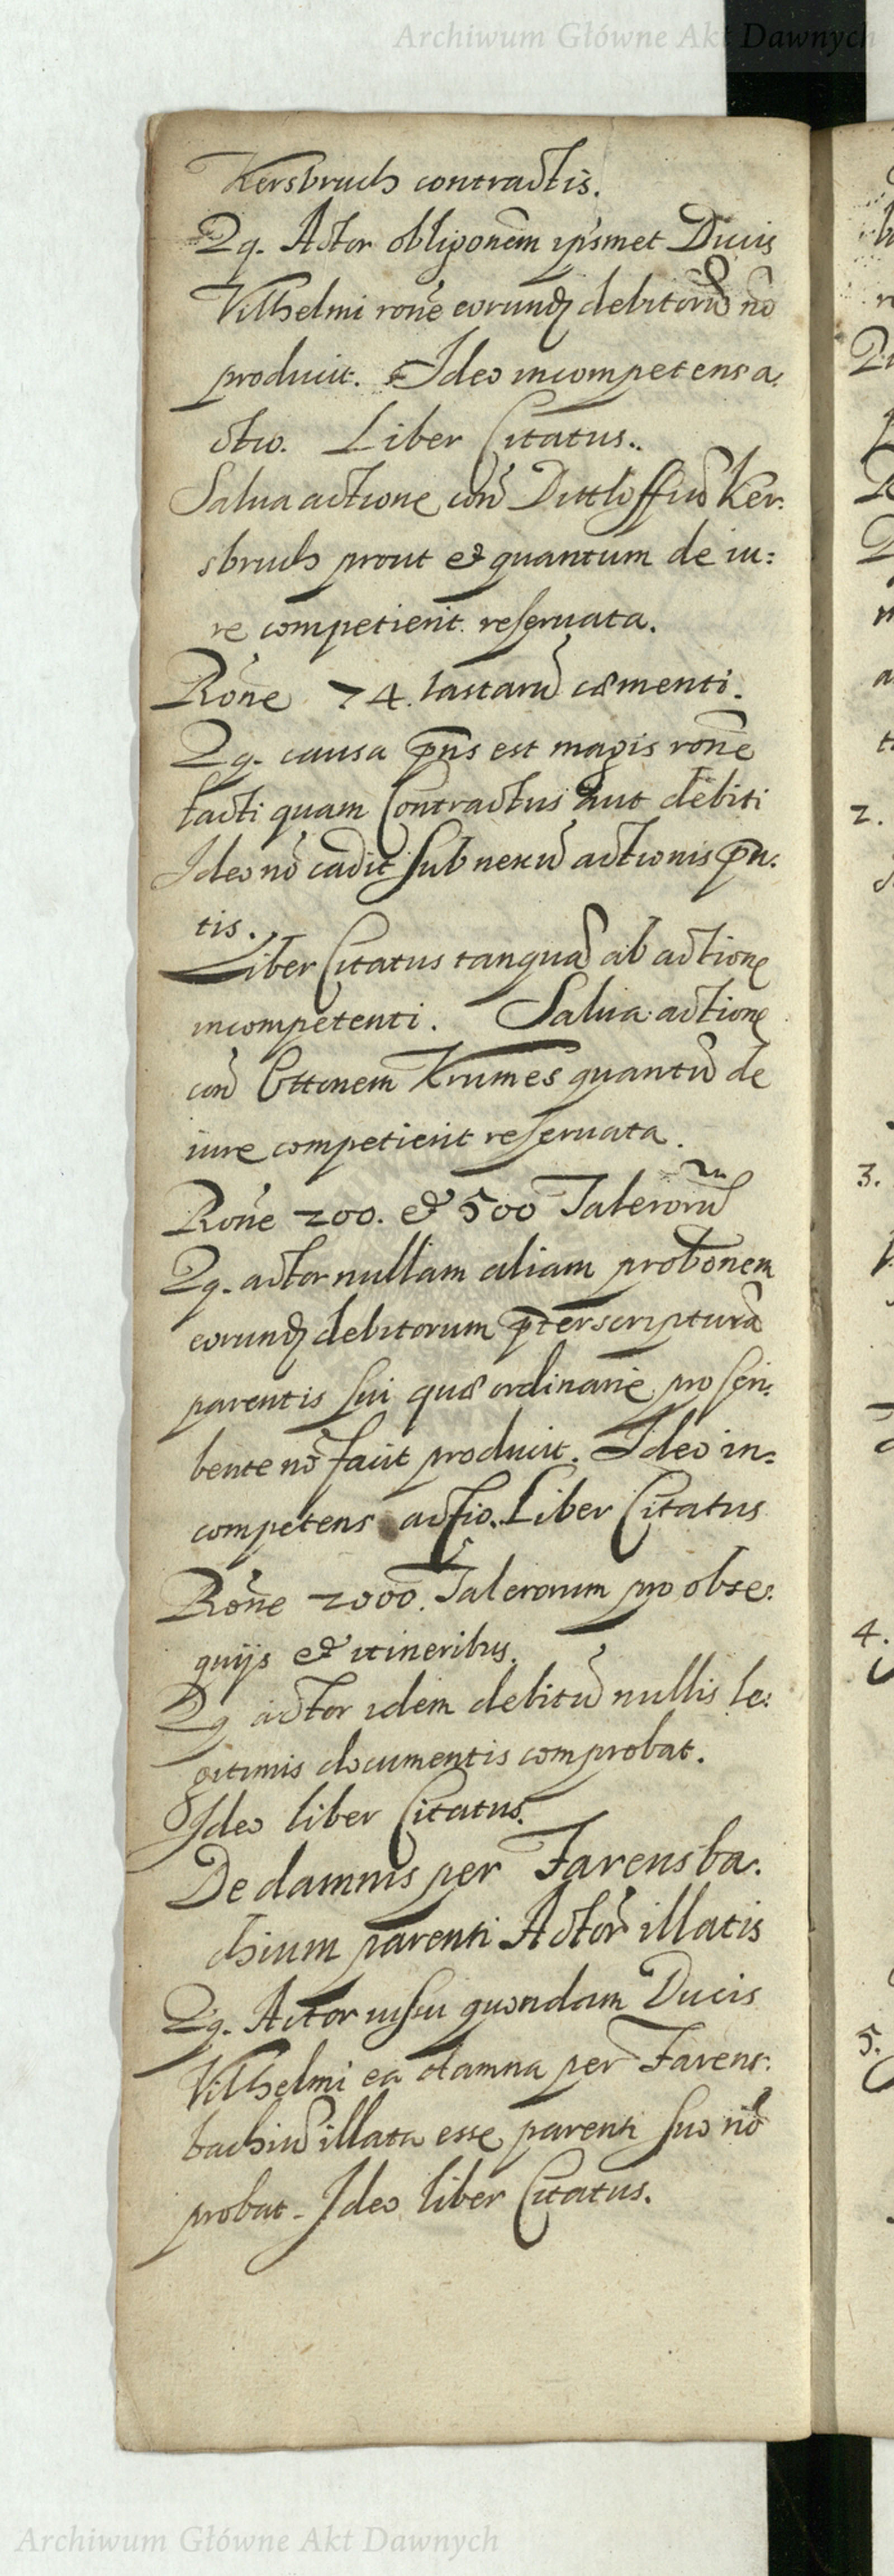 Archiwum Główne Akt Dawnych
Kersbruch contractis.
Qz. Actor obligõnem ipsmet Ducis
Vilhelmi rõne eorundẽ debitorũ nõ
producit. Ideo incompetens a:
ctio. Liber Citatus.
Salua actione con̄ Dittloffiũ Ker:
sbruch prout et quantum de iu:
re competierit reseruata.
Rõne 24. lastarũ cæmenti.
Qz. causa p̃ns est magis rõne
facti quam Contractus aut debiti
Ideo nõ cadit sub nexũ actionis p̃n:
tis.
Liber Citatus tanquã ab actione
incompetenti. Salua actione
con̄ Ottonem Krumes quantũ de
iure competierit reseruata.
Rõne 200. et 500 Talerorũ
Qz. actor nullam aliam probõnem
eorundẽ debitorum p̃ter scripturã
parentis sui quæ ordinarie pro scri:
bente nõ facit producit. Ideo in:
competens actio. Liber Citatus
Rõne 2000. Talerorum pro obse:
quijs et itineribus.
Qz actor idem debitũ nullis le:
gitimis documentis comprobat.
Ideo liber Citatus.
De damnis per Farensba:
chium parenti Actoris illatis
Qz. Actor iussu quondam Ducis
Vilhelmi ea damna per Farens:
bachiũ illata esse parenti suo nõ
probat. Ideo liber Citatus.
2.
3.
4.
5.
Archiwum Główne Akt Dawnych